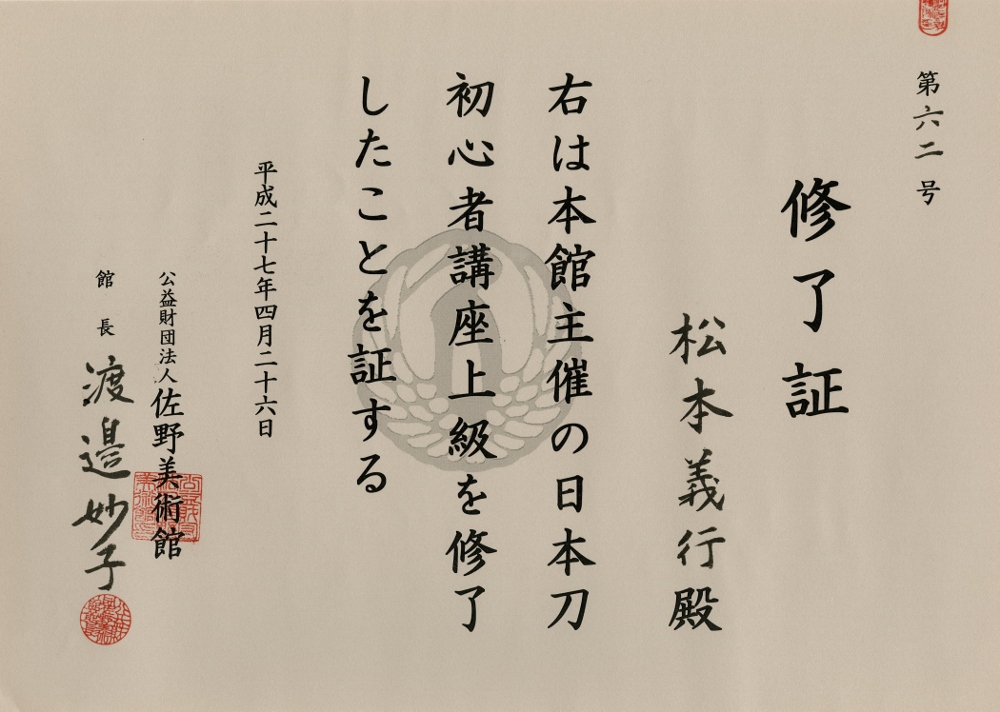 第六二号
修了証
松本義行殿
右は本館主催の日本刀
初心者講座上級を修了
したことを証する
平成二十七年四月二十六日
公益財団法人佐野美術館
館長 渡邉妙子